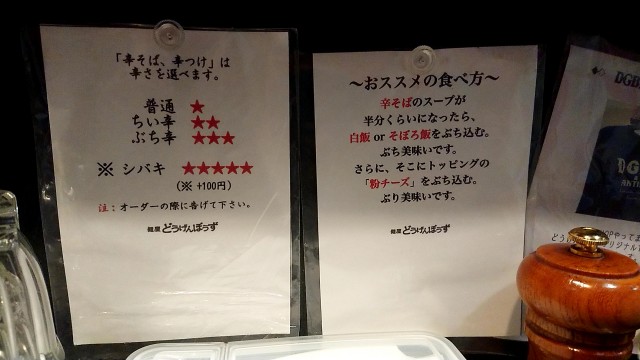 「辛そば、辛つけ」は
辛さを選べます。
普通 ★
ちい辛 ★★
ぶち辛 ★★★
※ シバキ ★★★★★
(※ +100円)
注:オーダーの際に告げて下さい。
麺屋 どうげんぼうず
～おススメの食べ方～
辛そばのスープが
半分くらいになったら、
白飯 or そぼろ飯をぶち込む。
ぶち美味いです。
さらに、そこにトッピングの
「粉チーズ」をぶち込む。
ぶり美味いです。
麺屋 どうげんぼうず